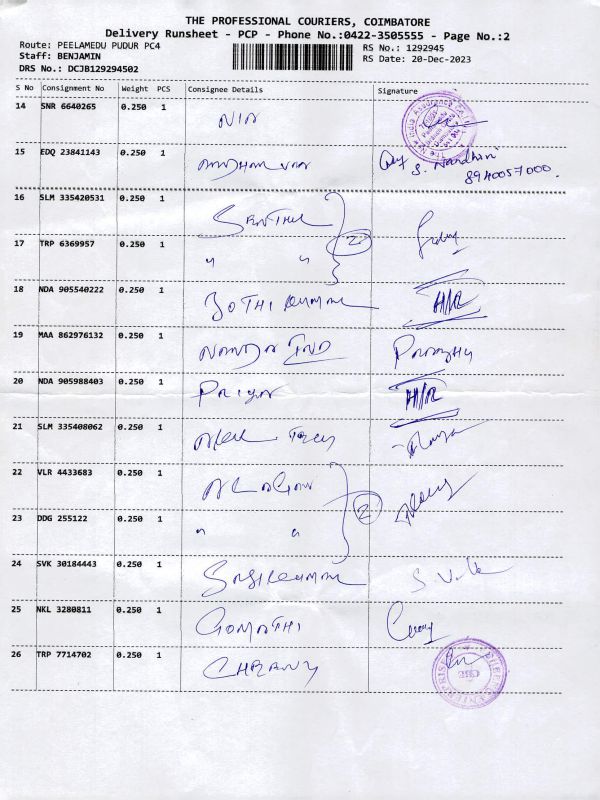 THE PROFESSIONAL COURIERS, COIMBATORE
Delivery Runsheet - PCP - Phone No.:0422-3505555 - Page No.:2
Route: PEELAMEDU PUDUR PC4
RS No.: 1292945
Staff: BENJAMIN
RS Date: 20-Dec-2023
DRS No.: DCJB129294502
S No Consignment No Weight PCS Consignee Details Signature
14 SNR 6640265 0.250 1 NIA
15 EDQ 23841143 0.250 1 S. Nandhini
8940057000.
16 SLM 335420531 0.250 1 SENTHIL
2
17 TRP 6369957 0.250 1 " "
18 NDA 905540222 0.250 1 JOTHI KUMAR H/R
19 MAA 862976132 0.250 1 NANDA IND
20 NDA 905988403 0.250 1 PRIYA H/R
21 SLM 335408062 0.250 1
22 VLR 4433683 0.250 1
2
23 DDG 255122 0.250 1 " "
24 SVK 30184443 0.250 1 SASIKUMAR
25 NKL 3280811 0.250 1 GOMATHI
26 TRP 7714702 0.250 1